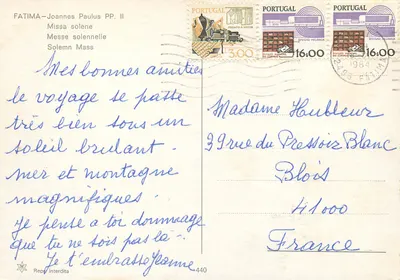 FATIMA—Joannes Paulus PP. II
Missa solene
Messe solennelle
Solemn Mass
Mes bonnes amitiés
le voyage se passe
très bien sous un
soleil brulant -
mer et montagne
magnifiques -
Je pense a toi dommage
que tu ne sois pas là -
Je t'embrasse Jeanne
PORTUGAL
5.00
PORTUGAL
16.00
PORTUGAL
16.00
FATIMA
Madame Hubbeur
39 rue du Pressoir Blanc
Blois
41000
France
Repr. interdita
440